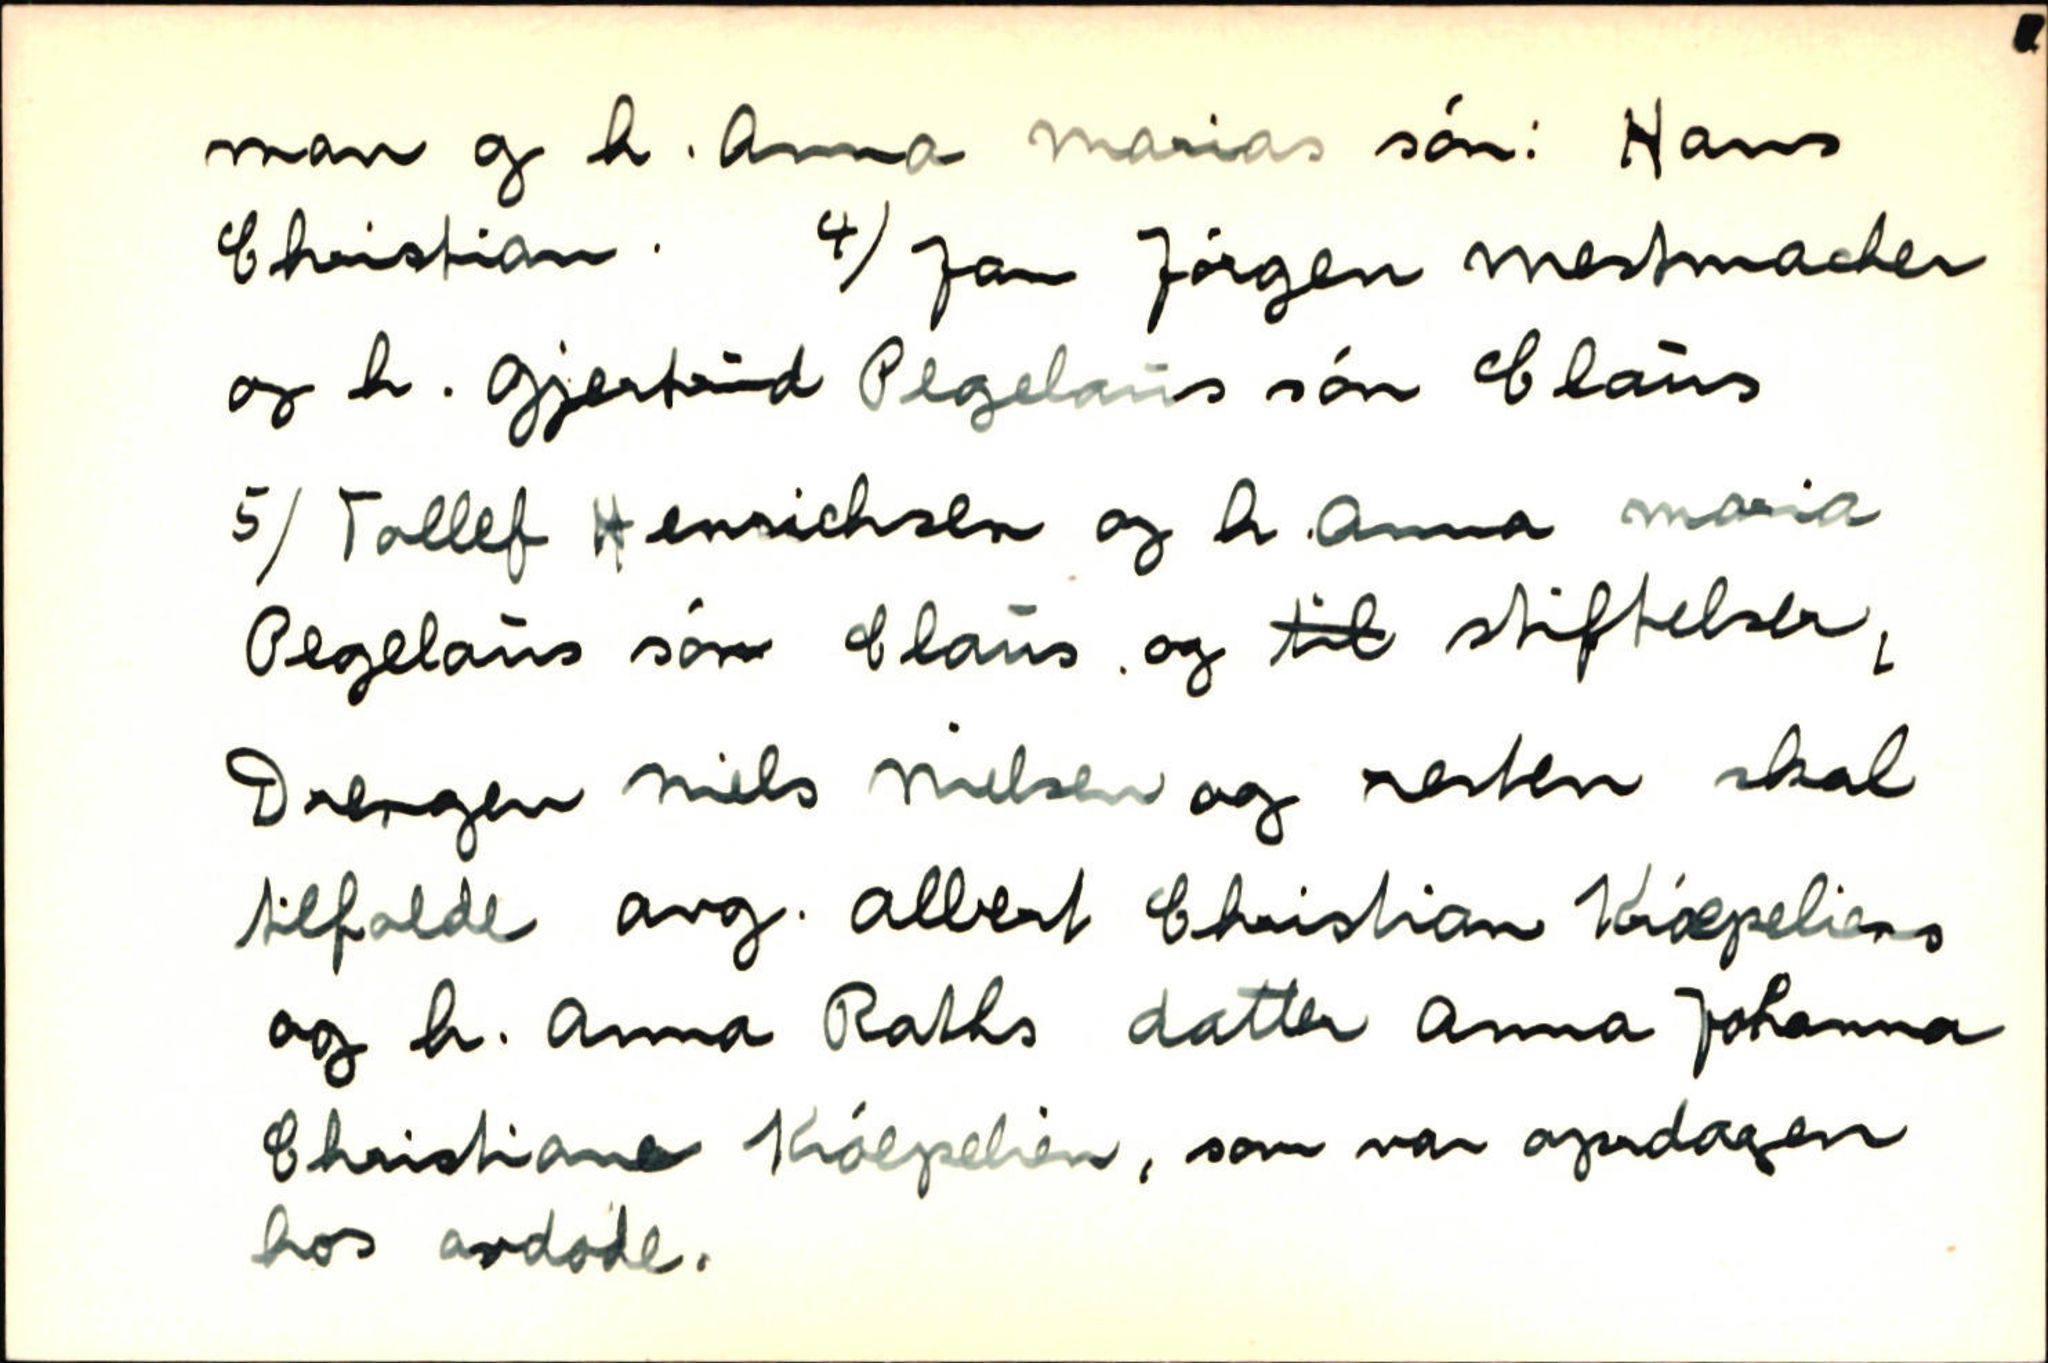 man og h. Anna Marias són: Hans
Christian. 4/ Jan Jórgen Mestmacher
og h. Gjertrūd Pegelaūs són Claūs
5/ Tollef Henrichsen og h. Anna Maria
Pegelaūs són Claūs. og til stiftelser,
Drengen Niels Nielsen og resten skal
tilfalde avg. Albert Christian Króepeliens
og h. Anna Raths datter Anna Johanna
Christiane Króepelien, som var opdragen
hos avdóde.